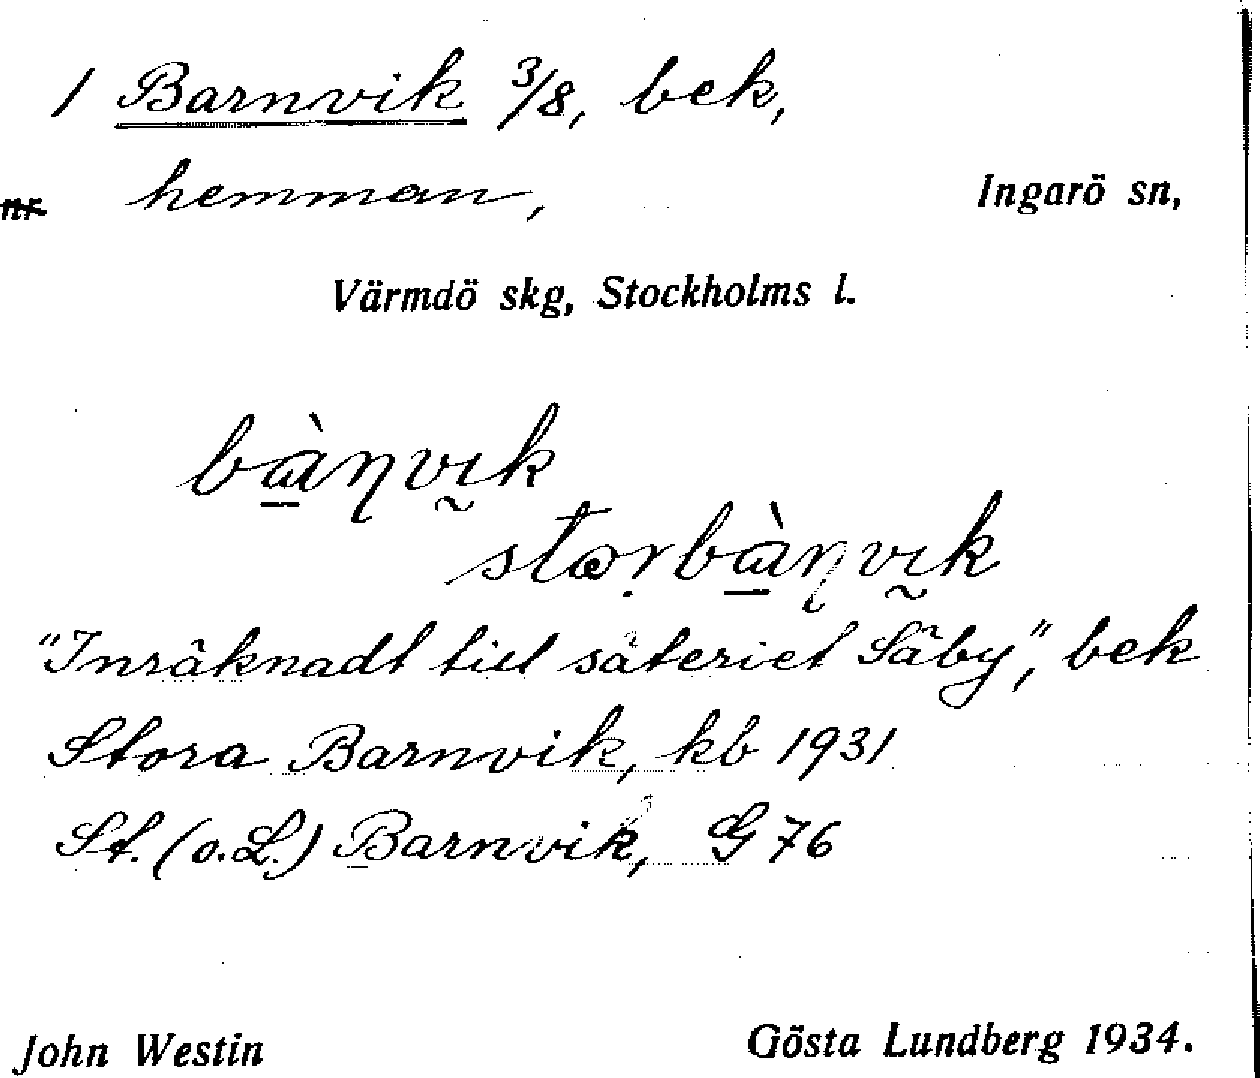 1 Barnvik 3/8, bek,
nr hemman, Ingarö sn,
Värmdö skg, Stockholms l.
bàꞃvik
stơrbàꞃvik
"Inräknadt till säteriet Säby", bek
Stora Barnvik, kb 1931
St. (o. L.) Barnvik, G 76
John Westin Gösta Lundberg 1934.